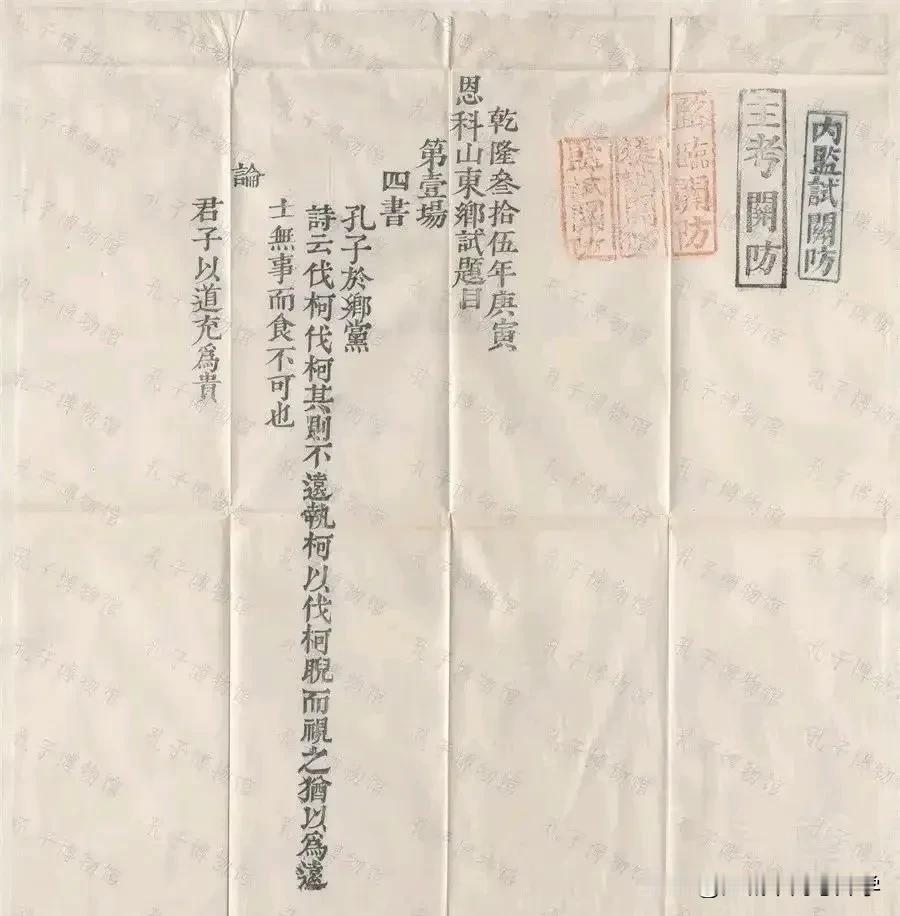 內監試關防
主考關防
監臨關防
監試關防
乾隆叁拾伍年庚寅
恩科山東鄉試題目
第壹場
四書
孔子於鄉黨
詩云伐柯伐柯其則不遠執柯以伐柯睨而視之猶以爲遠
士無事而食不可也
論
君子以道充爲貴
孔子博物馆